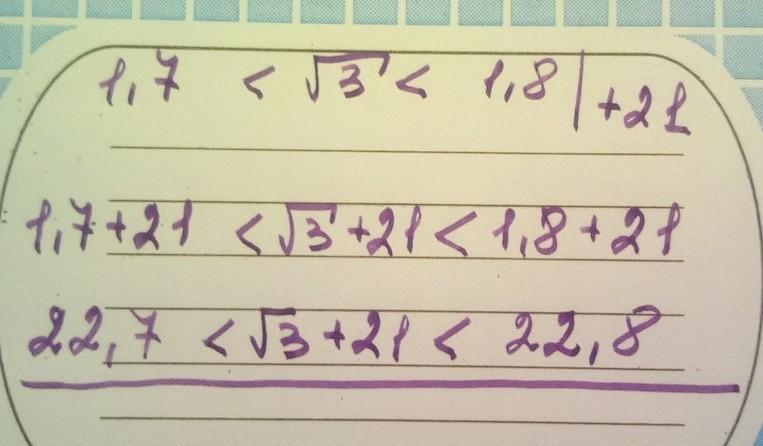 1,7 < √3 < 1,8 | +21
1,7+21 < √3 +21 < 1,8 + 21
22,7 < √3 + 21 < 22,8